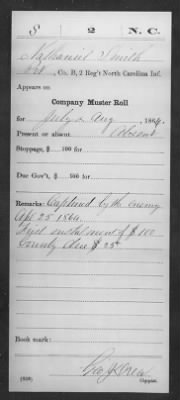 S 2 N.C.
Nathaniel Smith
Pvt, Co. B, 2 Reg't North Carolina Inf.
Appears on
Company Muster Roll
for July & Aug, 1864.
Present or absent Absent
Stoppage, $ 100 for
Due Gov't, $ 100 for
Remarks: Captured by the enemy
Apl 25 1864.
First installment of $100
Bounty due $25
Book mark:
(858) Copyist.